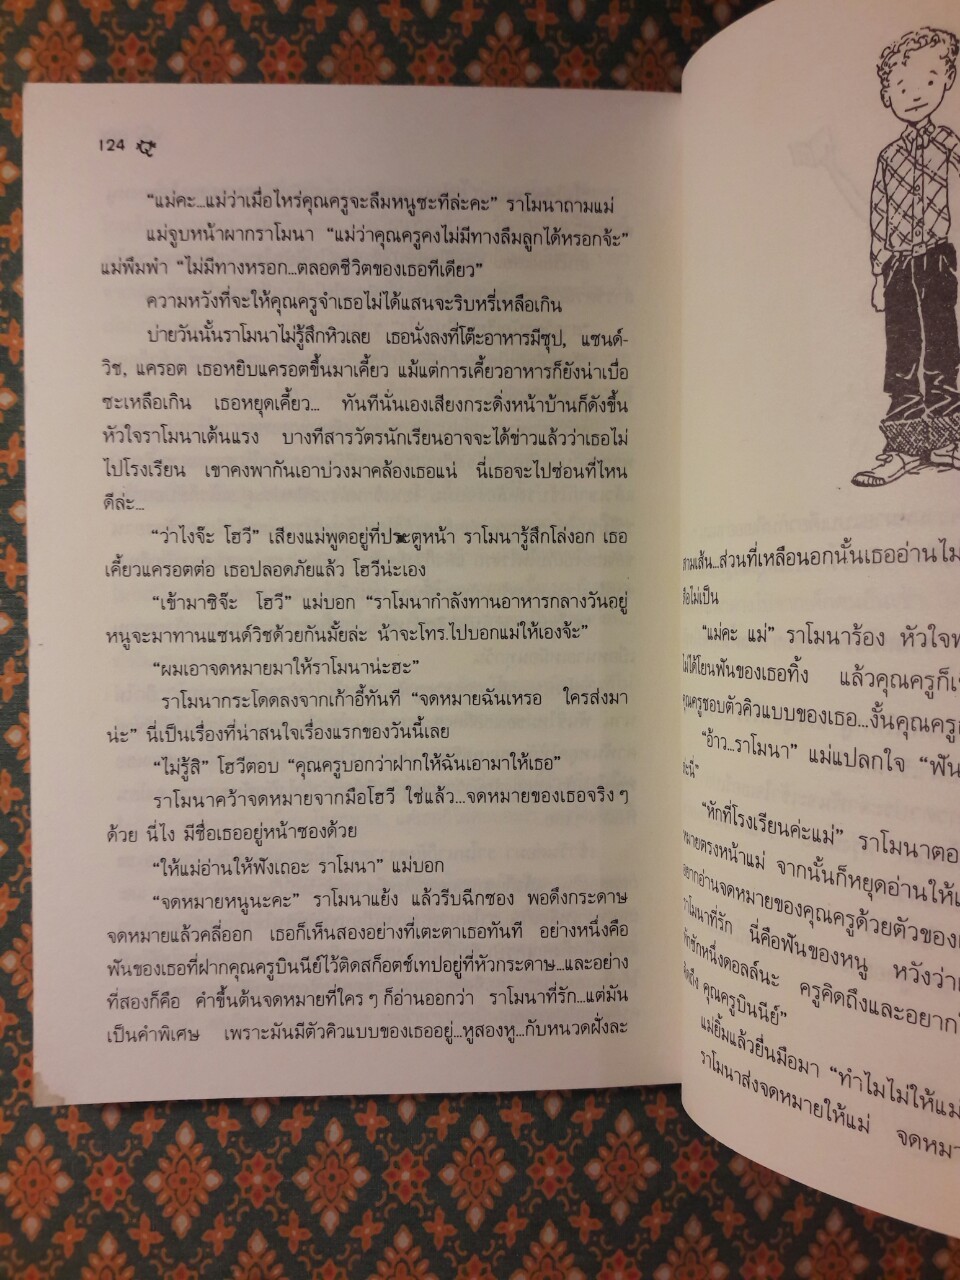 124
“แม่คะ...แม่ว่าเมื่อไหร่คุณครูจะลืมหนูซะทีล่ะคะ” ราโมนาถามแม่
แม่จูบหน้าผากราโมนา “แม่ว่าคุณครูคงไม่มีทางลืมลูกได้หรอกจ้ะ”
แม่พึมพำ “ไม่มีทางหรอก...ตลอดชีวิตของเธอทีเดียว”
ความหวังที่จะให้คุณครูจำเธอไม่ได้แสนจะริบหรี่เหลือเกิน
บ่ายวันนั้นราโมนาไม่รู้สึกหิวเลย เธอนั่งลงที่โต๊ะอาหารมีซุป, แซนด์-
วิช, แครอต เธอหยิบแครอตขึ้นมาเคี้ยว แม้แต่การเคี้ยวอาหารก็ยังน่าเบื่อ
ซะเหลือเกิน เธอหยุดเคี้ยว... ทันทีนั่นเองเสียงกระดิ่งหน้าบ้านก็ดังขึ้น
หัวใจราโมนาเต้นแรง บางทีสารวัตรนักเรียนอาจจะได้ข่าวแล้วว่าเธอไม่
ไปโรงเรียน เขาคงพากันเอาบ่วงมาคล้องเธอแน่ นี่เธอจะไปซ่อนที่ไหน
ดีล่ะ...
“ว่าไงจ๊ะ โฮวี” เสียงแม่พูดอยู่ที่ประตูหน้า ราโมนารู้สึกโล่งอก เธอ
เคี้ยวแครอตต่อ เธอปลอดภัยแล้ว โฮวีน่ะเอง
“เข้ามาซิจ๊ะ โฮวี” แม่บอก “ราโมนากำลังทานอาหารกลางวันอยู่
หนูจะมาทานแซนด์วิชด้วยกันมั้ยล่ะ น้าจะโทร.ไปบอกแม่ให้เองจ้ะ”
“ผมเอาจดหมายมาให้ราโมนาน่ะฮะ”
ราโมนากระโดดลงจากเก้าอี้ทันที “จดหมายฉันเหรอ ใครส่งมา
น่ะ” นี่เป็นเรื่องที่น่าสนใจเรื่องแรกของวันนี้เลย
“ไม่รู้สิ” โฮวีตอบ “คุณครูบอกว่าฝากให้ฉันเอามาให้เธอ”
ราโมนาคว้าจดหมายจากมือโฮวี ใช่แล้ว...จดหมายของเธอจริงๆ
ด้วย นี่ไง มีชื่อเธออยู่หน้าซองด้วย
“ให้แม่อ่านให้ฟังเถอะ ราโมนา” แม่บอก
“จดหมายหนูนะคะ” ราโมนาแย้ง แล้วรีบฉีกซอง พอดึงกระดาษ
จดหมายแล้วคลี่ออก เธอก็เห็นสองอย่างที่เตะตาเธอทันที อย่างหนึ่งคือ
ฟันของเธอที่ฝากคุณครูบินนีย์ไว้ติดสก็อตช์เทปอยู่ที่หัวกระดาษ...และอย่าง
ที่สองก็คือ คำขึ้นต้นจดหมายที่ใครๆ ก็อ่านออกว่า ราโมนาที่รัก...แต่มัน
เป็นคำพิเศษ เพราะมันมีตัวคิวแบบของเธออยู่...หูสองหู...กับหนวดฝั่งละ
สามเส้น...ส่วนที่เหลือนอกนั้นเธออ่านไม่
“แม่คะ แม่” ราโมนาร้อง
ไม่ได้โยนฟันของเธอทิ้ง แล้วคุณครูก็เ
คุณครูชอบตัวคิวแบบของเธอ...งั้นคุณครู
“อ้าว...ราโมนา” แม่แปลกใจ “ฟัน
“หักที่โรงเรียนค่ะแม่” ราโมนาตอ
หมายตรงหน้าแม่ จากนั้นก็หยุดอ่านให้
อยากอ่านจดหมายของคุณครูด้วยตัวของ
ราโมนาที่รัก นี่คือฟันของหนู หวังว่า
ซักหนึ่งดอลล์นะ ครูคิดถึงและอยาก
คิดถึง คุณครูบินนีย์”
แม่ยิ้มแล้วยื่นมือมา “ทำไมไม่ให้แม่
ราโมนาส่งจดหมายให้แม่ จดหมา